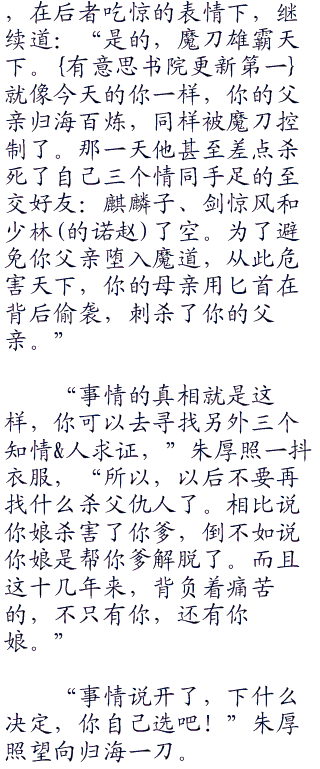 ，在后者吃惊的表情下，继
续道：“是的，魔刀雄霸天
下。{有意思书院更新第一}
就像今天的你一样，你的父
亲归海百炼，同样被魔刀控
制了。那一天他甚至差点杀
死了自己三个情同手足的至
交好友：麒麟子、剑惊风和
少林(的诺赵)了空。为了避
免你父亲堕入魔道，从此危
害天下，你的母亲用匕首在
背后偷袭，刺杀了你的父
亲。”
“事情的真相就是这
样，你可以去寻找另外三个
知情&人求证，”朱厚照一抖
衣服，“所以，以后不要再
找什么杀父仇人了。相比说
你娘杀害了你爹，倒不如说
你娘是帮你爹解脱了。而且
这十几年来，背负着痛苦
的，不只有你，还有你
娘。”
“事情说开了，下什么
决定，你自己选吧！”朱厚
照望向归海一刀。